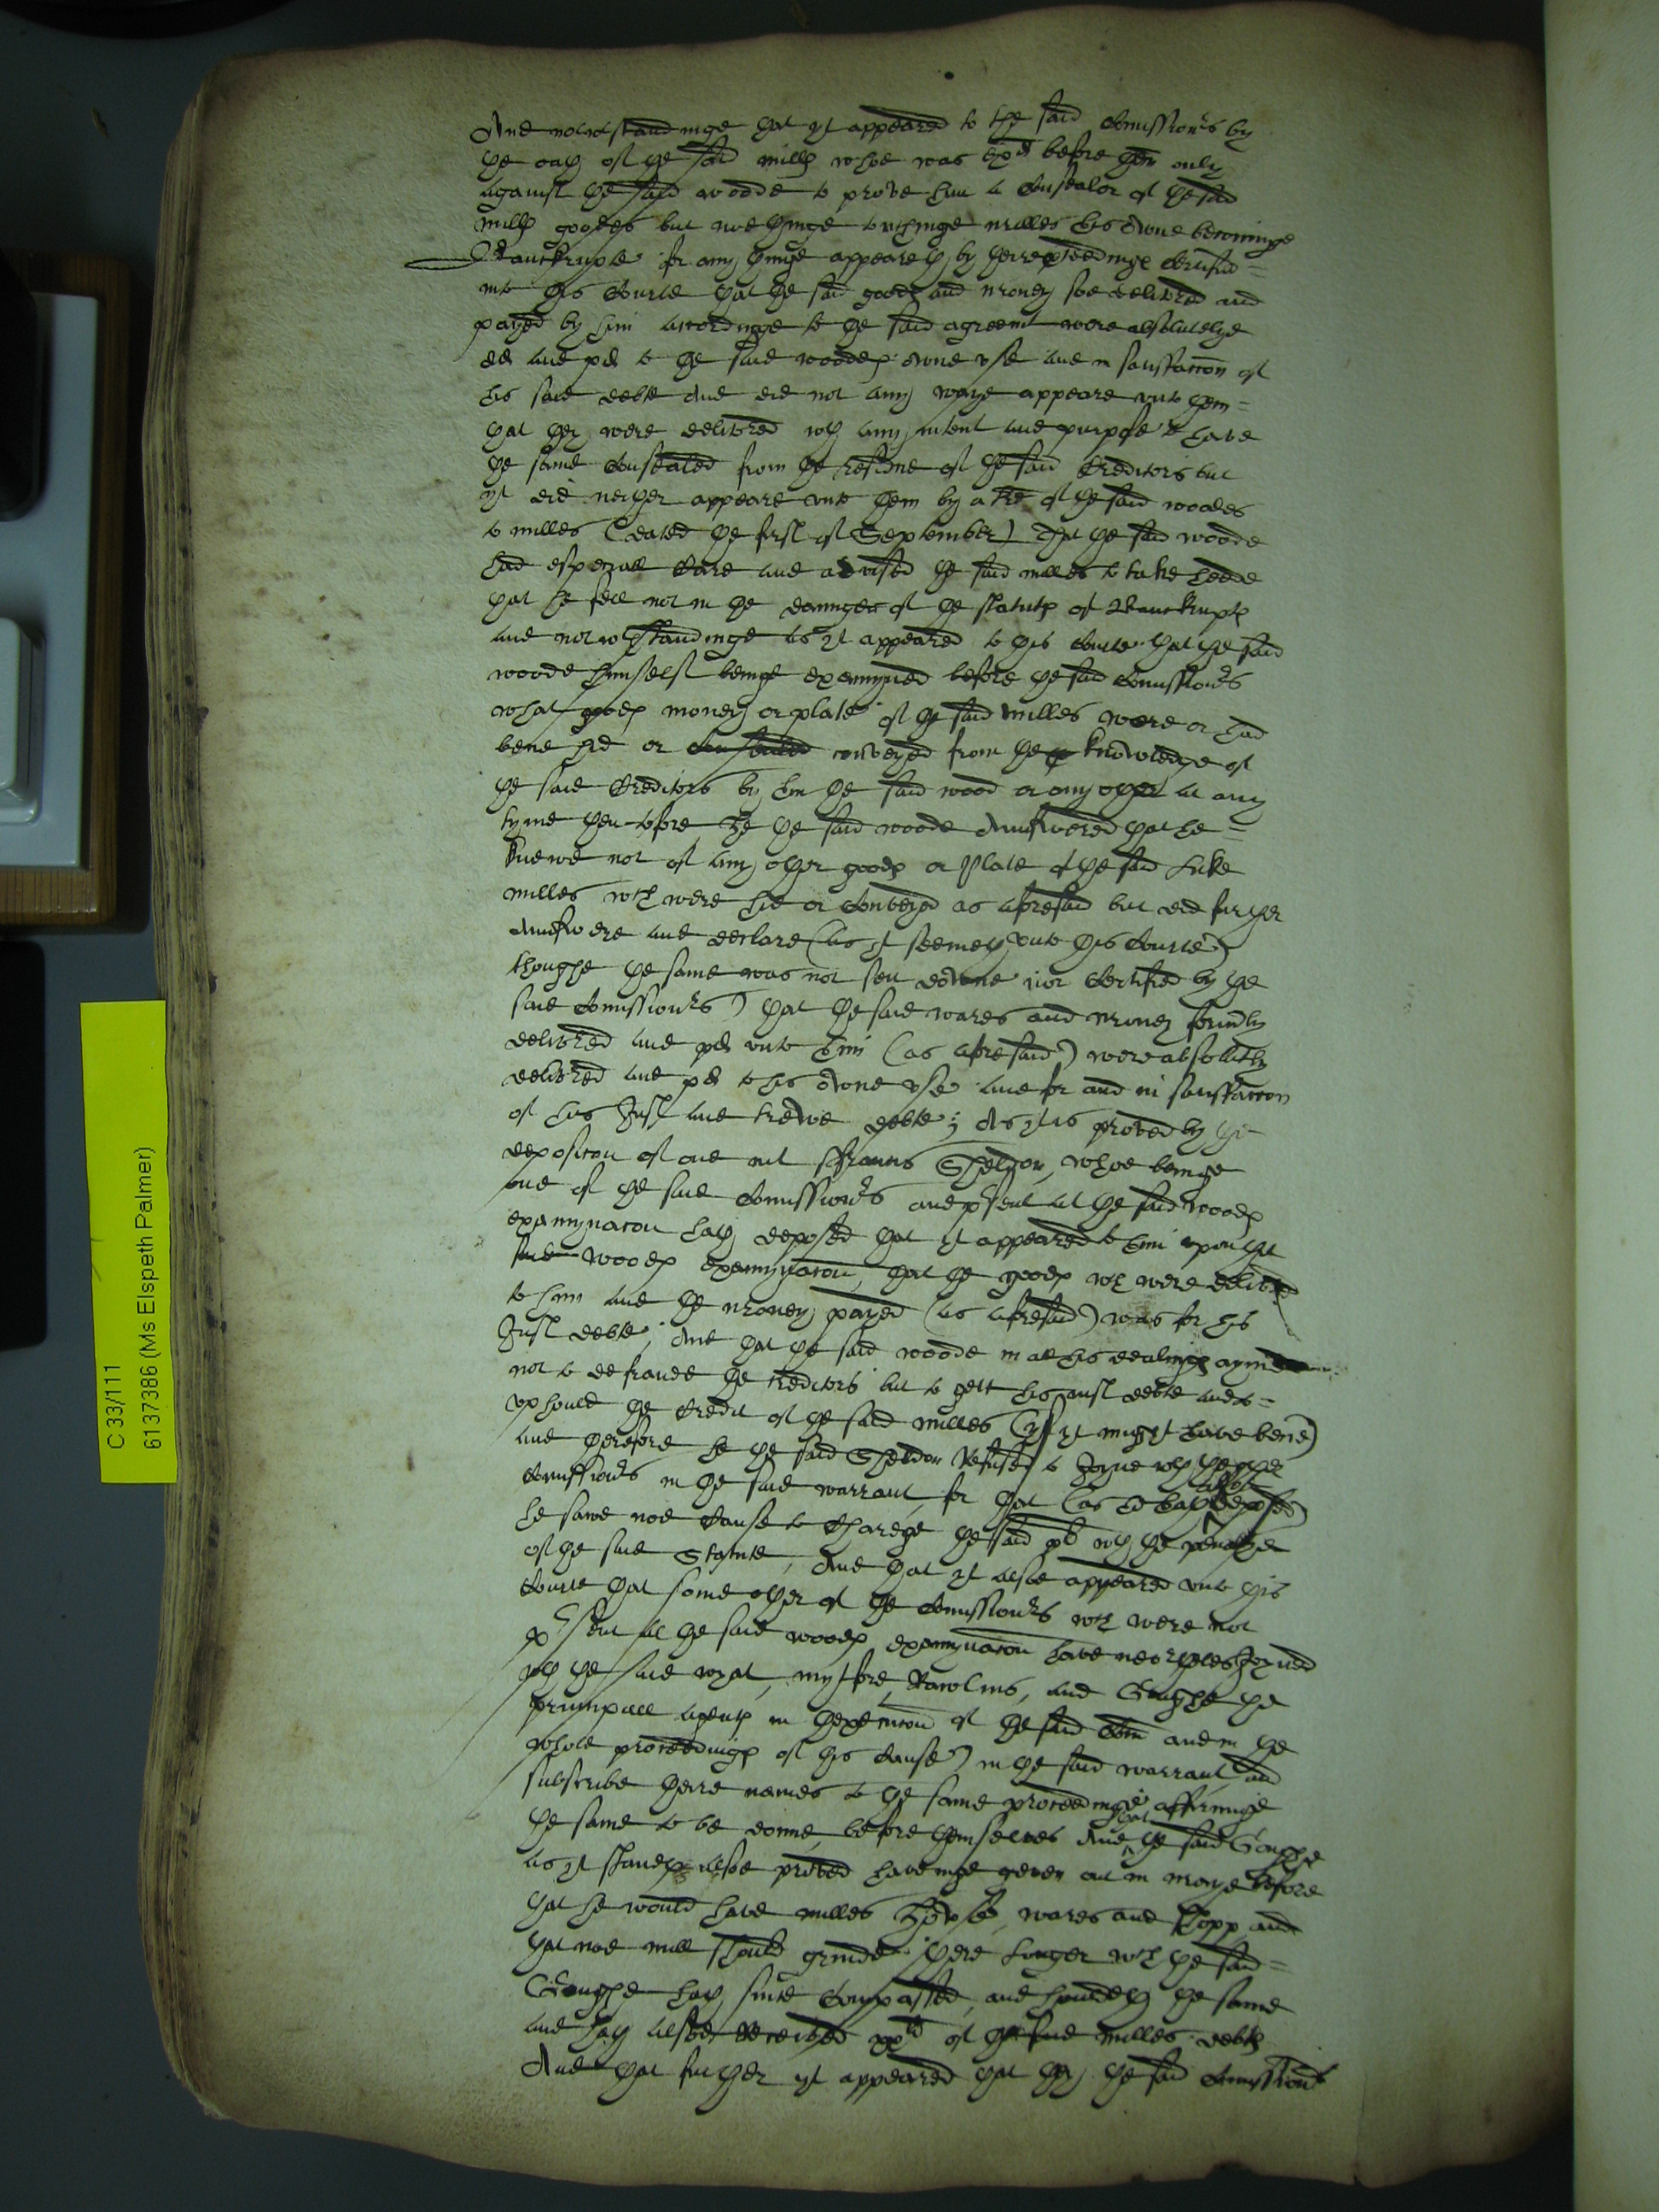 And notwthstandinge that yt appeared to the said Comissionrs by
the oath of the said mills whoe was exd before them only
against the said woodde to prove him a Consealor of the said
mills goodes but noe thinge towchinge milles his owne becominge
Banckrupte for any thinge appeareth by theire pceedings Certified =
into this Courte that the said goods and money soe delivred and
payed by him accordinge to the said agreemt were absolutelye
dd and pd to the said woodds owne vse and in satisfaccon of
his said debte and did not any waye appeare vnto them =
that they were delivred wth any intent and purpose to have
the same Consealed from the residue of the said Creditors but
yt did neither appeare vnto them by a lre of the said woodes
to milles (dated the first of September) That the said woode
had especiall Care and advised the said milles to take heede
that he fell not in the daunger of the statuts of Banckrupts
and notwthstandinge as yt appeared to this Courte that the said
woode himself beinge examyned before the said Comissionrs
what goods money or plate of the said milles were or had
bene hid or conveyed from the knowledge of
the said Creditors by him the said wood or any other at any
tyme then tofore he the said woode Answered that he =
knewe not of any other goods or Plate of the said Luke
milles wch were hid or Conveyed as aforesaid but did further
Answere and declare (as yt seemeth vnto this Courte
thoughe the same was not sett downe nor Certified by the
said Comissionrs) that the said wares and money formerly
delivred and pd vnto him (as aforesaid) were absolutly
delivred and pd to his owne vse and for and in satisfaccon
of his Just and trewe debte; As yt is proved by the
deposicon of one mr ffrauncis Sheldon, whoe beinge
one of the said Comissionrs and psent at the said woods
examynacon hath deposed that yt appeared to him vpon the
said woods examynacon, that the goods wch were delivred
to him and the money payed (as aforesaid) was for his
Just debte; And that the said woode in all his dealings aymed
not to defraude the Creditors but to gett his iust debte and to =
vphould the Credit of the said milles (yf yt might have bene)
and therefore he the said Sheldon Refused to Joyne wth the other
Comissionrs in the said warrant, for that (as he hath also deposed)
he sawe noe Cause to Chardge the said pl wth the penaltye
of the said Statute, And that yt alsoe appeared vnto this
Courte that some other of the Comissionrs wch were not
psent at the said woods examynacon have neverthelesse Joyned
wth the said Rawlins, and Goughe the
principall agents in thexecucon of the said Com and in the
whole proceedings of this Cause) in the said warrant and
subscribe theire names to the same proceedinge affirminge
the same to be donne before themselves And that the said Goughe
as yt standeth alsoe proved havinge geven out in before
that he would have milles howse, wares and shopp and
that noe mill should grinde there longer wch the said =
Goughe hath since Compassed, and houldeth the same
and hath alsoe Received xxli of the said milles debts
And that further yt appeared that they the said Comissionrs
C 33/111
6137386 (Ms Elspeth Palmer)